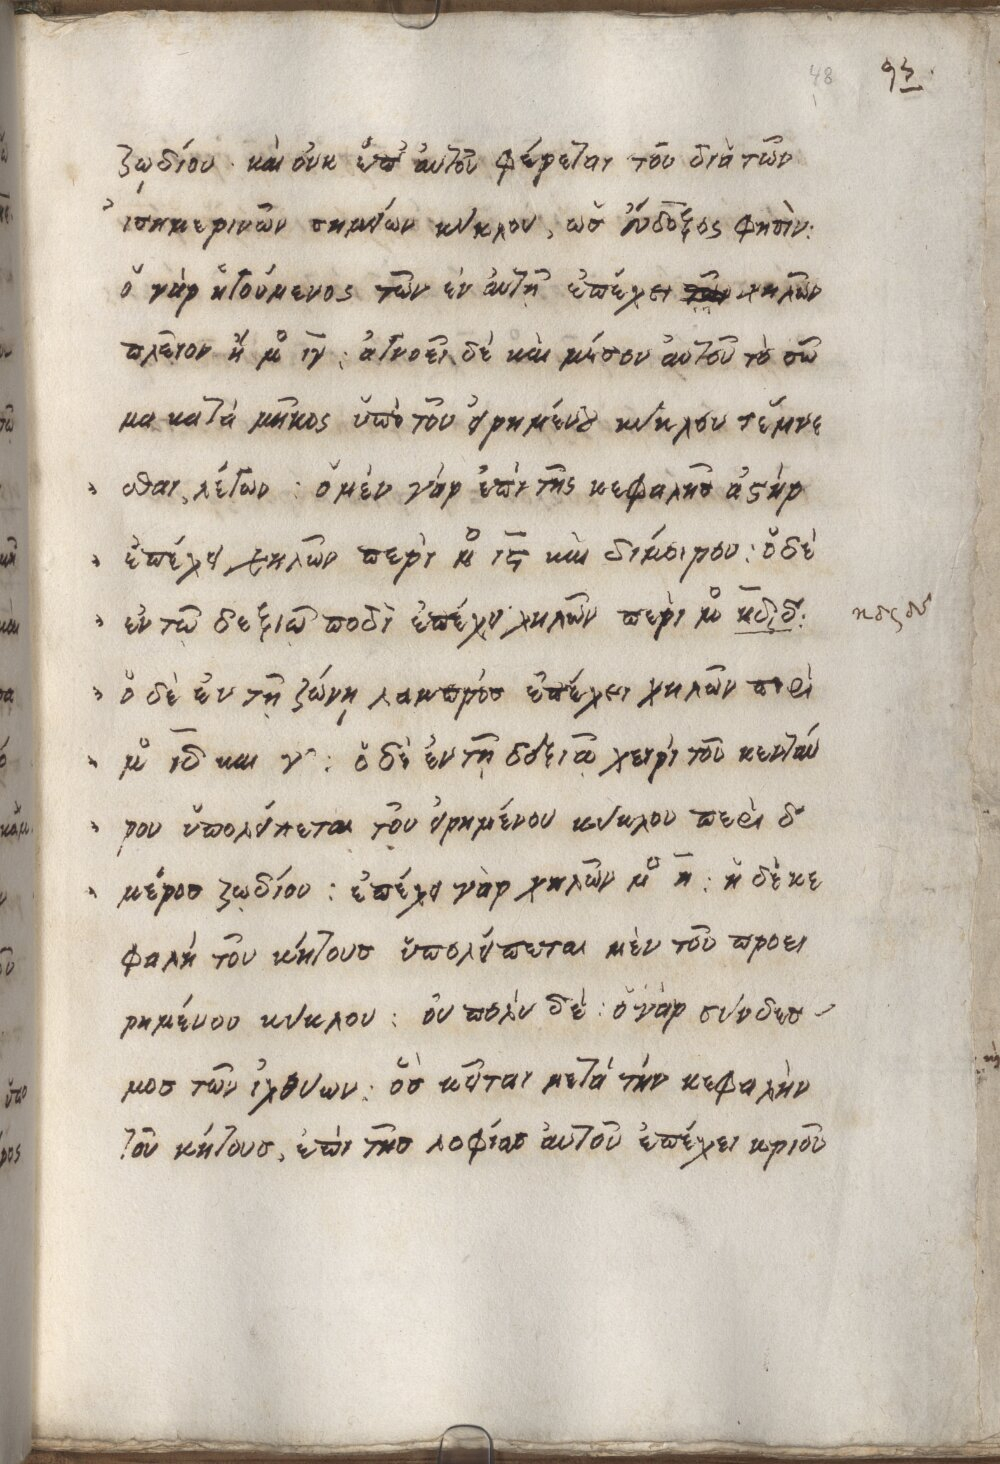 48 93
ζῳδίου· καὶ οὐκ ἐπ' αὐτοῦ φέρεται τοῦ διὰ τῶν
ἰσημερινῶν σημείων κύκλου, ὡς Εὔδοξος φησὶν:
ὁ γὰρ ἡγούμενος τῶν ἐν αὐτῇ ἐπέχει χηλῶν
πλεῖον ἢ μο ιγ: ἀγνοεῖ δὲ καὶ μέσον αὐτοῦ τὸ σῶ
μα κατὰ μῆκος ὑπὸ τοῦ εἰρημένου κύκλου τέμνε
σθαι, λέγων: ὁ μὲν γὰρ ἐπὶ τῆς κεφαλῆς ἀστὴρ
ἐπέχει χηλῶν περὶ μο ιϛ καὶ δίμοιρον: ὁ δὲ
ἐν τῷ δεξιῷ ποδὶ ἐπέχει χηλῶν περὶ μο κδ δ: κδ δ
ὁ δὲ ἐν τῇ ζώνῃ λαμπρὸς ἐπέχει χηλῶν περὶ
μο ιδ καὶ γ: ὁ δὲ ἐν τῇ δεξιᾷ χειρὶ τοῦ κενταύ
ρου ὑπολείπεται τοῦ εἰρημένου κύκλου περὶ δ
μέρος ζῳδίου: ἐπέχει γὰρ χηλῶν μο η: ἡ δὲ κε
φαλὴ τοῦ κήτους ὑπολείπεται μὲν τοῦ προει
ρημένου κύκλου: οὐ πολὺ δέ: ὁ γὰρ σύνδεσ-
μος τῶν ἰχθύων: ὃς κεῖται μετὰ τὴν κεφαλὴν
τοῦ κήτους, ἐπὶ τῆς λοφίας αὐτοῦ ἐπέχει κριοῦ